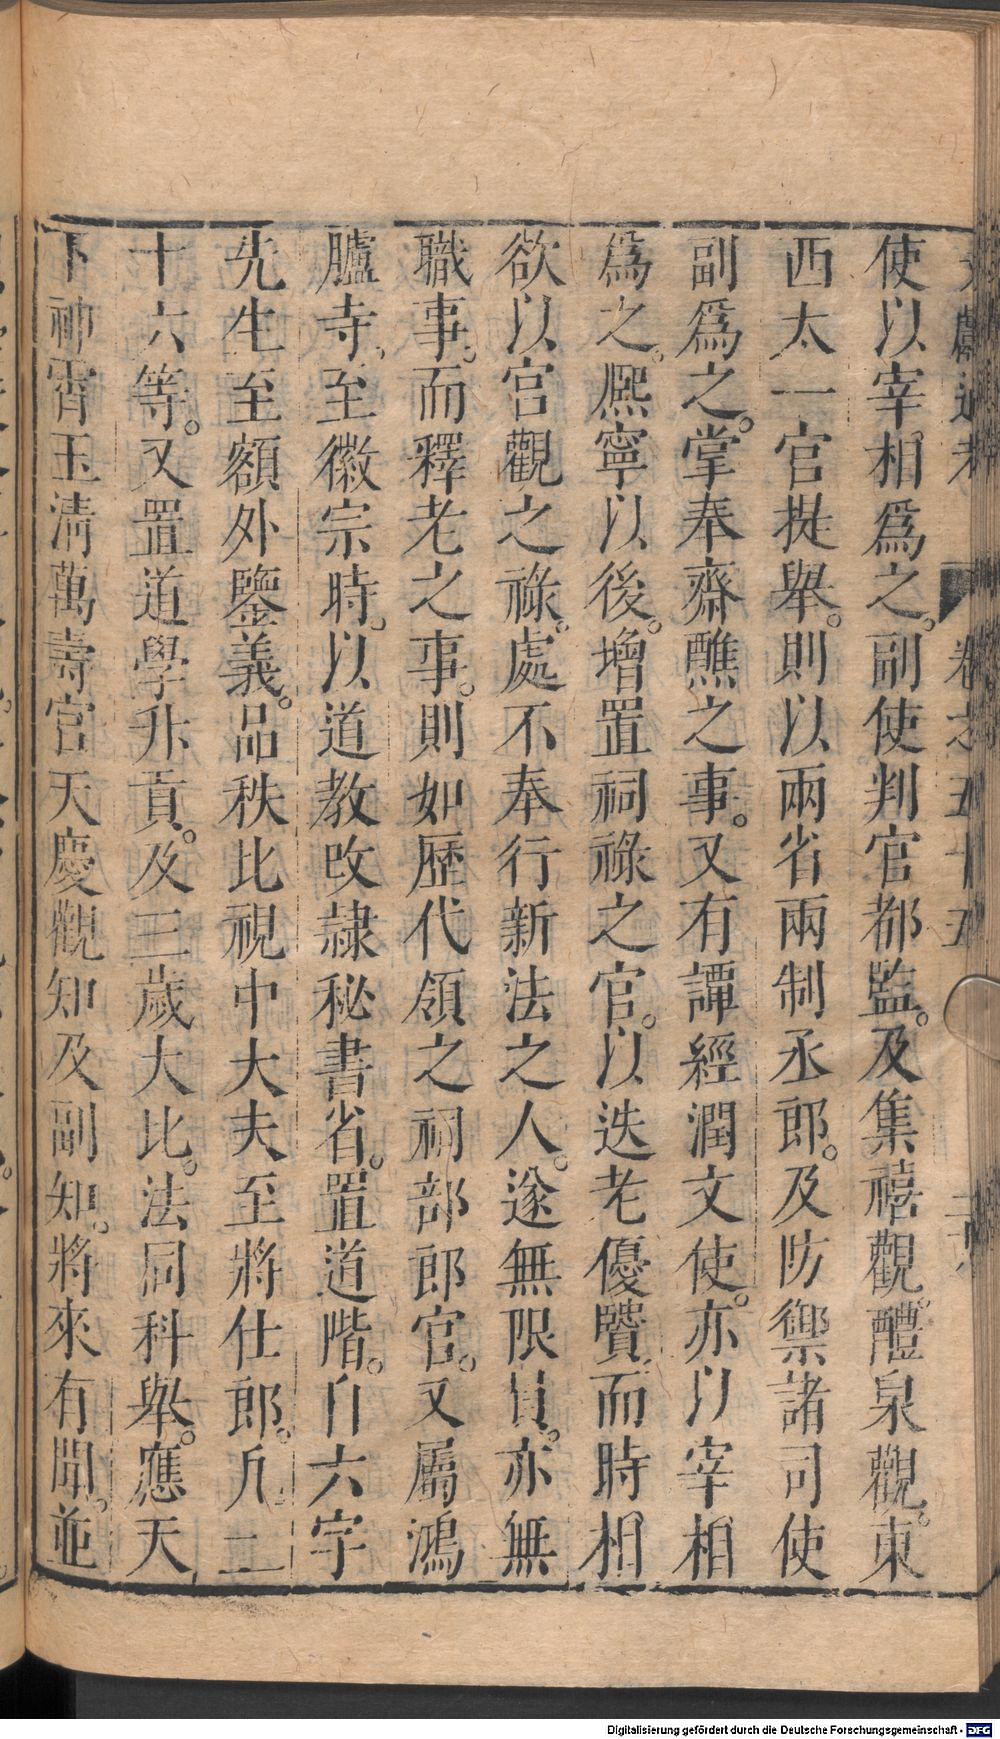 文獻通考 卷之五十五
使以宰相爲之。副使判官都監。及集禧觀。醴泉觀。東
西太一宮提舉。則以兩省兩制丞郎。及防禦諸司使
副爲之。掌奉齋醮之事。又有譚經潤文使。亦以宰相
爲之。熈寧以後。增置祠祿之官。以迭老優賢。而時相
欲以宮觀之祿。處不奉行新法之人。遂無限員。亦無
職事。而釋老之事。則如歷代領之祠部郎官。又屬鴻
臚寺。至徽宗時。以道教改隷秘書省。置道階。自六字
先生至額外鑒義。品秩比視中大夫至將仕郎。凡二
十六等。又置道學升貢。及三歲大比。法同科舉。應天
下神霄玉清萬壽宮天慶觀知及副知。將來有闕。並
Digitalisierung gefördert durch die Deutsche Forschungsgemeinschaft - DFG